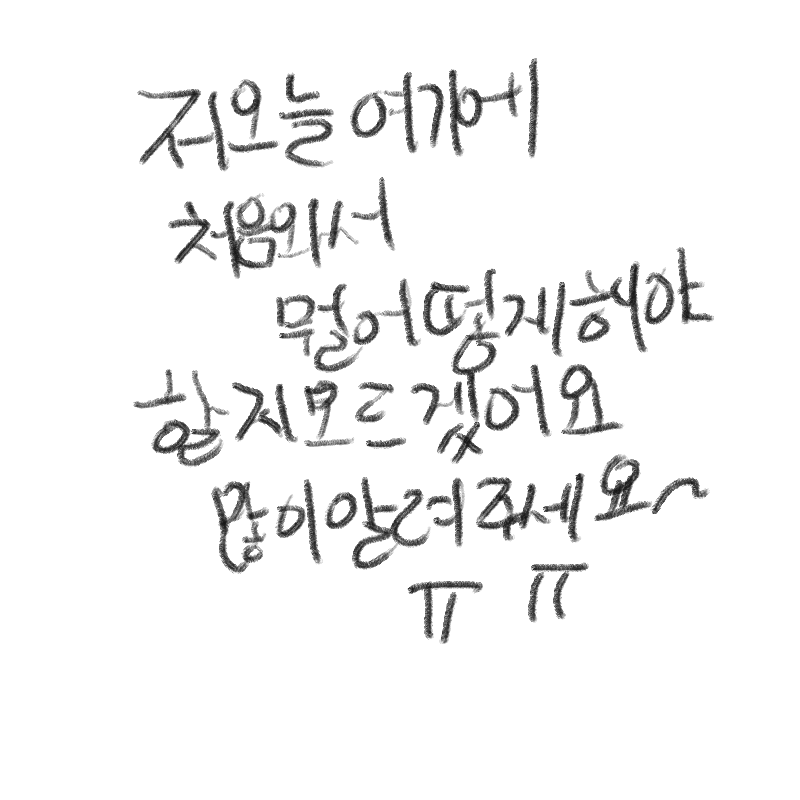 저오늘 여기에
처음와서
뭘어떻게해야
할지모르겠어요
많이알려주세요~
ㅠㅠ